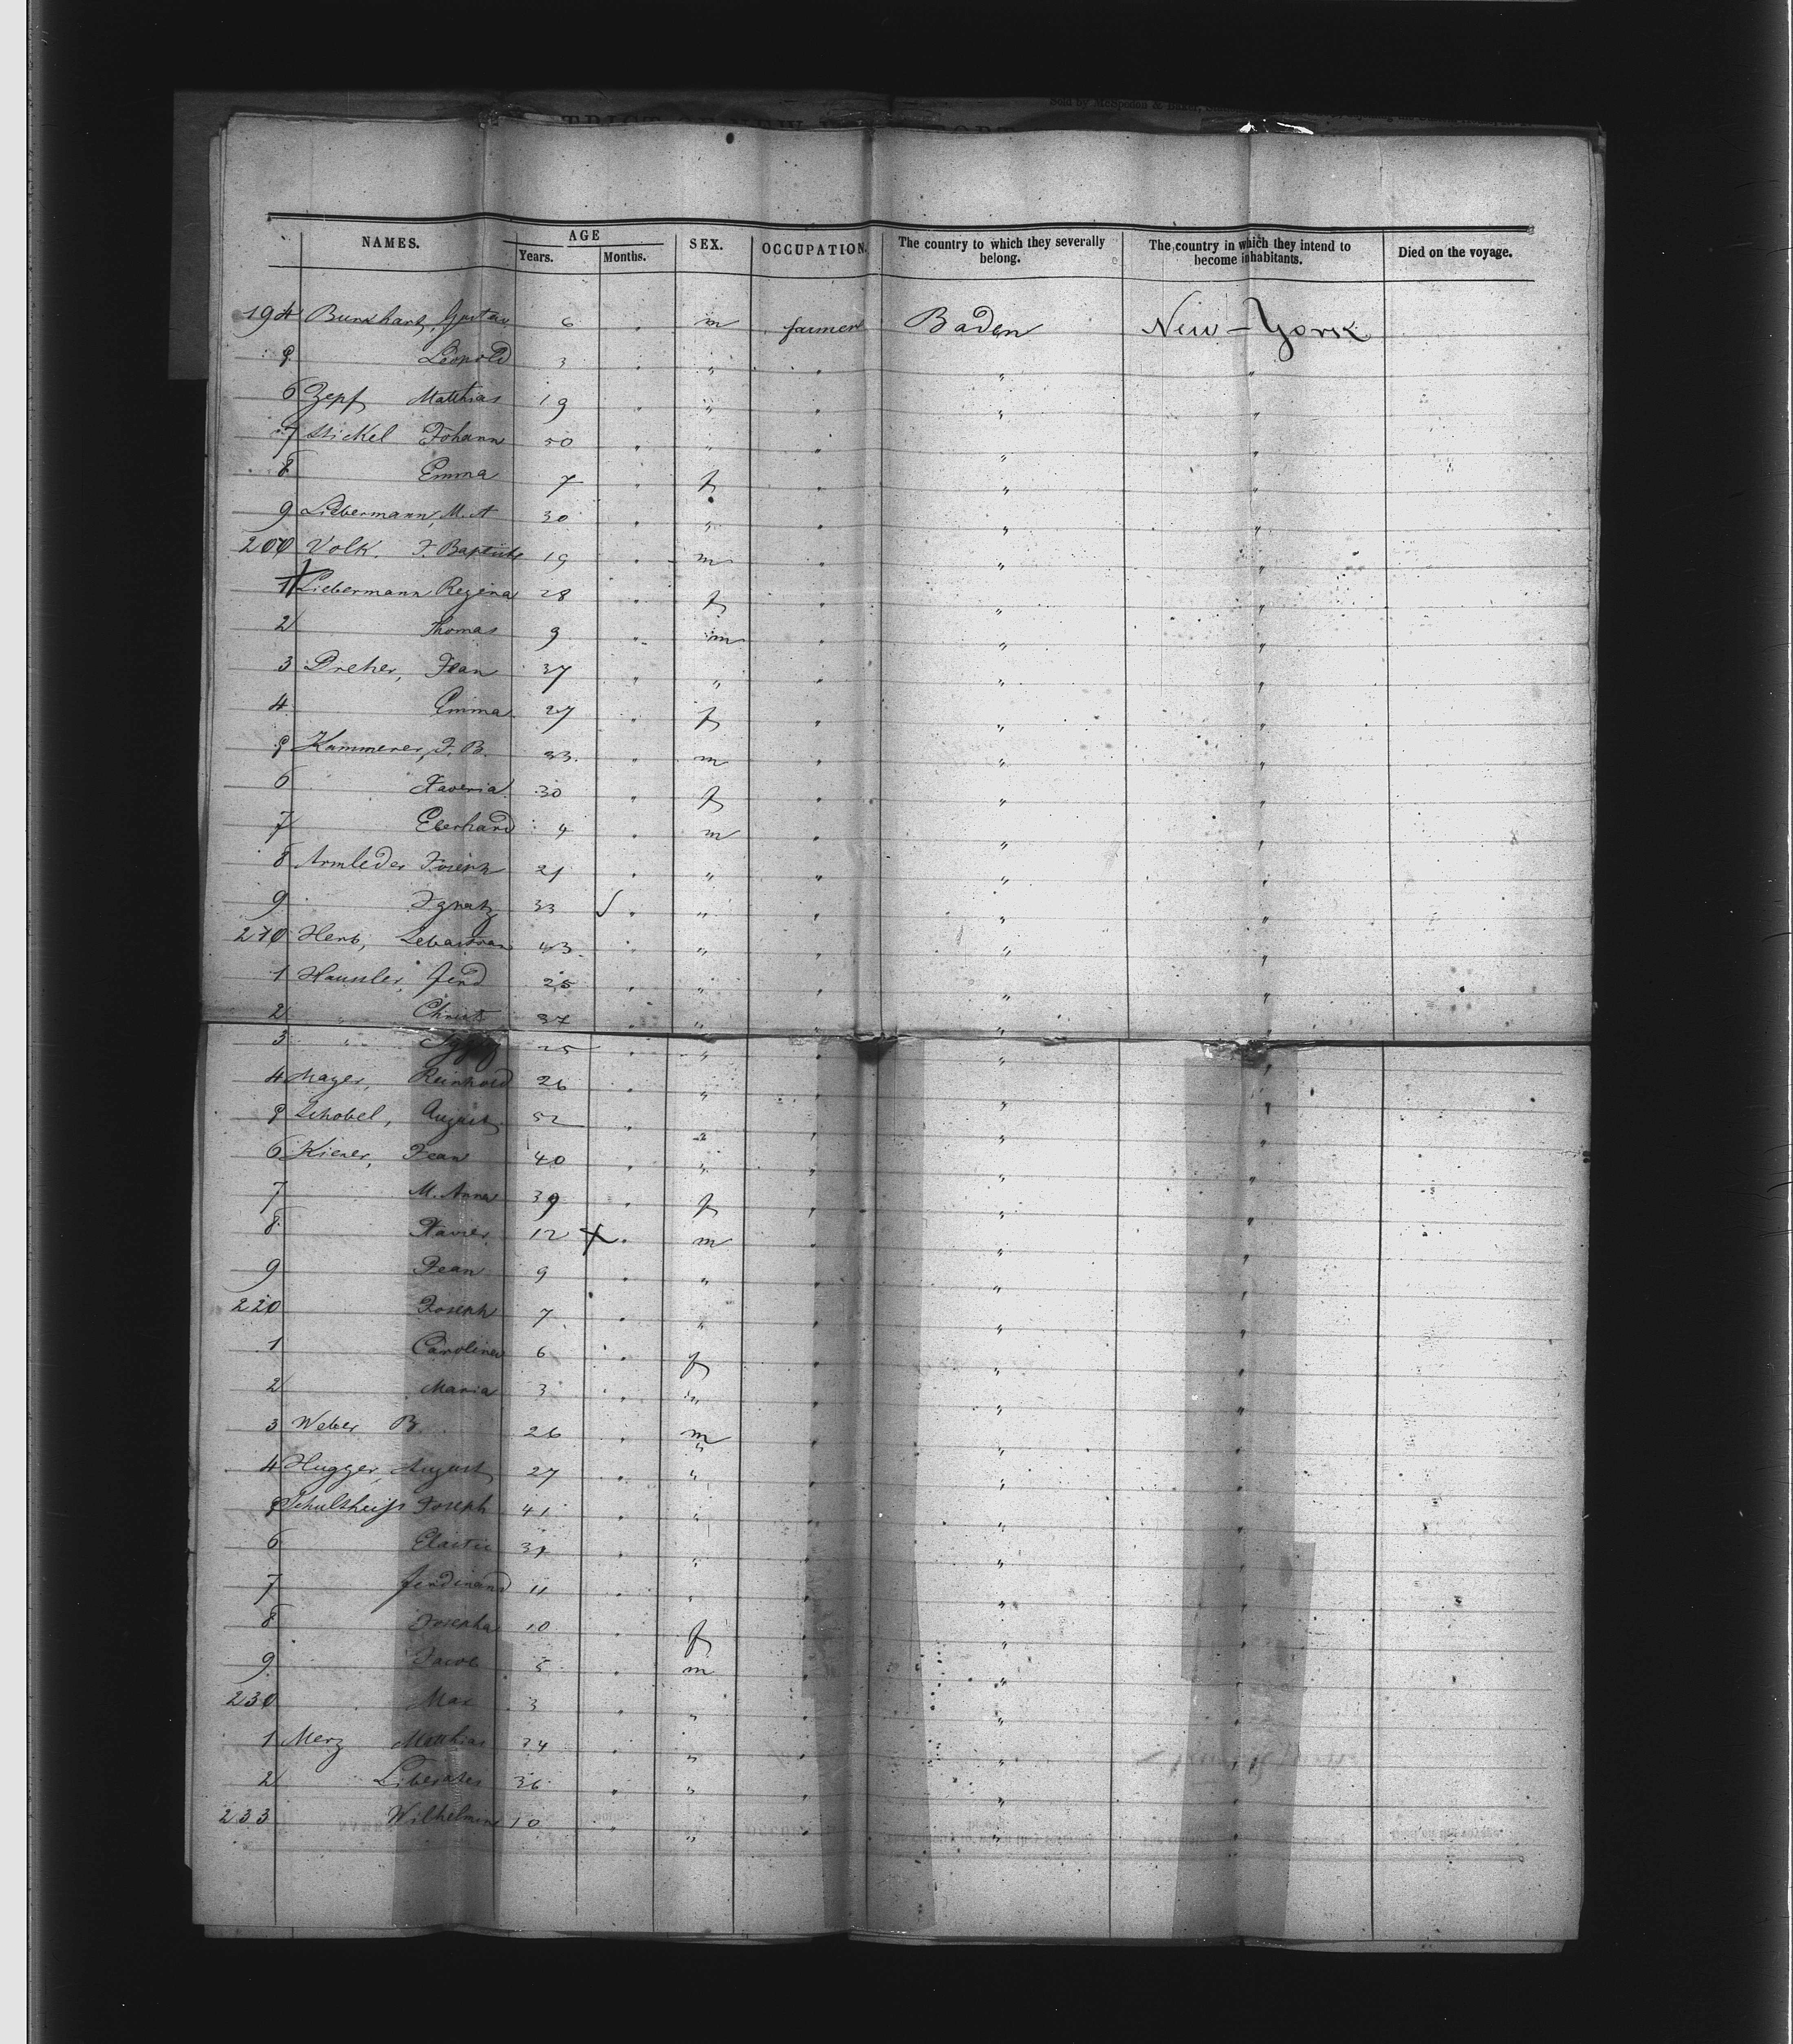 Sold by McSpedon & Baker,
TRICT OF NEW
NAMES. AGE SEX. OCCUPATION. The country to which they severally belong. The country in which they intend to become inhabitants. Died on the voyage.
Years. Months.
194 Burkhart, Gustav 6 " m farmer Baden New-York
5 Leopold 3 " " " " "
6 Zepf Matthias 19 " " " " "
7 Stickel Johann 50 " " " " "
8 Emma 7 " f " " "
9 Liebermann, M. A 30 " " " " "
200 Volk. J. Baptiste 19 " m " " "
1 Liebermann Regina 28 " f " " "
2 Thomas 9 " m " " "
3 Dreher, Jean 37 " " " " "
4 Emma 27 " f " " "
5 Kammerer, J. B. 33 " m " " "
6 Xaveria 30 " f " " "
7 Eberhard 4 " m " " "
8 Armleder Joseph 21 " " " " "
9 Ignatz 33 " " " " "
210 Herb, Sebastian 43 " " " " "
1 Haussler, Ferd 25 " " " " "
2 " Christ 37 " " " " "
3 " 25 " " " " "
4 Mayer, Reinhold 26 " " " " "
5 Schobel, August 52 " " " " "
6 Kiener, Jean 40 " " " " "
7 M. Anna 39 " f " " "
8 Xavier 12 " m " " "
9 Jean 9 " " " " "
220 Joseph 7 " " " " "
1 Caroline 6 " f " " "
2 Maria 3 " " " " "
3 Weber B. 26 " m " " "
4 Hugger, August 27 " " " " "
5 Schultheiss Joseph 41 " " " " "
6 " " " " "
7 Ferdinand 11 " " " " "
8 Josepha 10 " f " " "
9 Jacob 5 " m " " "
230 Max 3 " " " " "
1 Merz Matthias 34 " " " " "
2 36 " " " " "
233 Wilhelmine 10 " " " " "